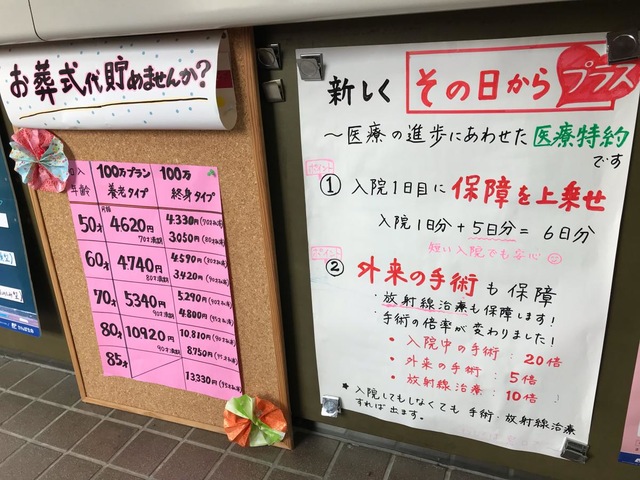 お葬式代貯めませんか?
加入年齢
100万プラン 養老タイプ
100万 終身タイプ
50才
月額 4620円 70才満期
4.330円(70才払済)
3050円(80才払済)
60才
4.740円 80才満期
4.590円(80才払済)
3.420円(90才払済)
70才
5340円 90才満期
5.290円(90才払済)
4.800円(95才払済)
80才
10920円 90才満期
10,810円(90才払済)
8.750円(95才払済)
85才
13,330円(95才払済)
新しく その日からプラス
～医療の進歩にあわせた医療特約です
ポイント
① 入院1日目に 保障を上乗せ
入院1日分+5日分=6日分
短い入院でも安心
ポイント
② 外来の手術も保障
・放射線治療も保障します!
・手術の倍率が変わりました!
・入院中の手術:20倍
・外来の手術:5倍
・放射線治療:10倍
★入院してもしなくても 手術・放射線治療
すれば出ます。